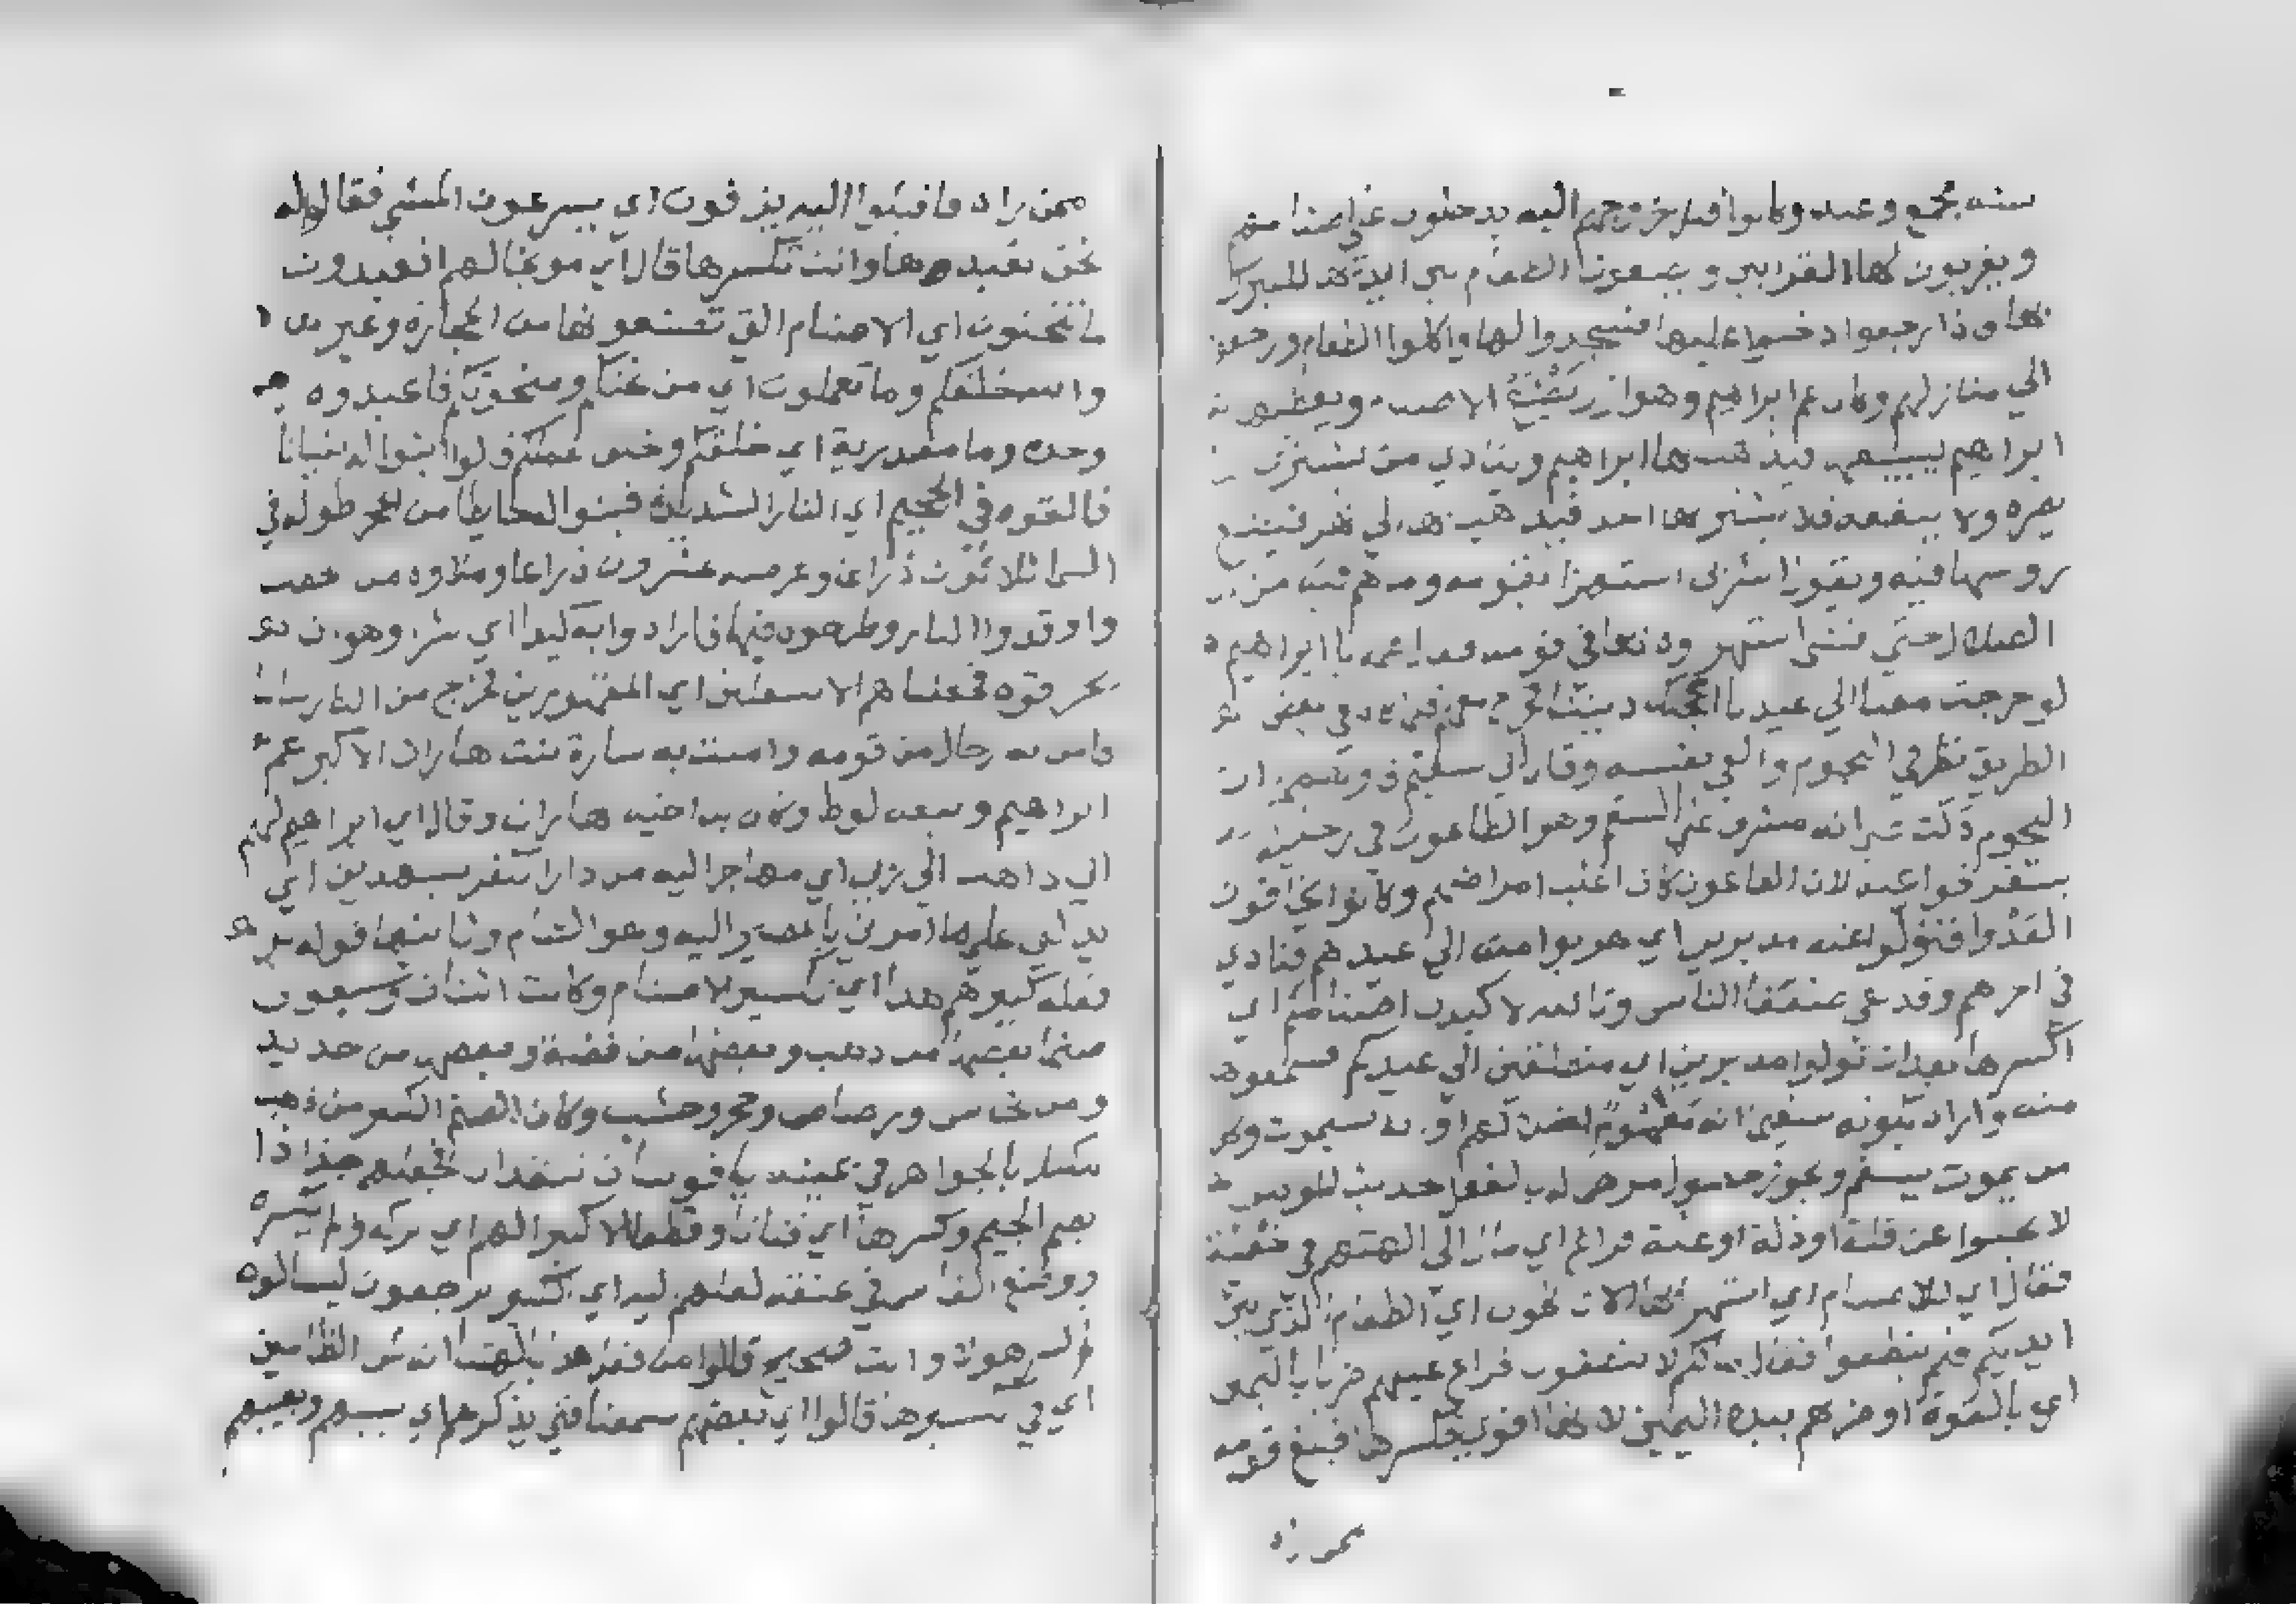 سنه مجمع وعيد وكانوا قبل خروجهم اليه يدخلون علي اصنامهم
ويقربون لها القرابين ويضعون الطعام بين الالهة للتبرك
بها واذا رجعوا دخلوا عليها فسجدوا لها واكلوا الطعام ورجعوا
الي منازلهم وكان عم ابراهيم وهو ازر الاصنام ويعطيها
ابراهيم ليبيعها فيذهب بها ابراهيم وينادي من يشتري
يضره ولا ينفعه فلا يشتريها احد فيذهب بها الي نهر فيضع
روسها فيه ويقول اشربي استهزا بقومه وما هم فيه من
الضلال حتي فشي استهزاوه بها في قومه فدعي يا ابراهيم
لو خرجت معنا الي عيدنا اعجبك ديننا فخرج معهم فلما كان في بعض
الطريق نظر في النجوم والقي نفسه وقال اني سقيم
النجوم دلت علي انه مشرف علي السقم وهو الطاعون في
يتفرقوا عنه لان الطاعون كان اغلب امراضهم وكانوا يخافون
العدوا فتولوا عنه مدبرين اي هربوا منه الي عيدهم فنادي
في اخرهم وقد بقي ضعفا الناس وتالله لاكيدن اصنامكم اي
اكسرها بعد ان تولوا مدبرين اي منطلقين الي عيدكم فسمعوها
منه واراد بكونه سقيما انه مغموم لضلالهم او انه سيموت وكل
من يموت يسقم
لا عجبوا عن قلة او ذلة او علة فراغ اي مال الي الهتهم في خفية
فقال اي للاصنام اي استهزا بها الا تاكلون اي الطعام الذي بين
ايديكم فلم ينطقوا فقال ما لكم لا تنطقون فراغ عليهم ضربا باليمين
اي بالقوة او ضربهم بيده اليمين لانها اقوي فكسرها فبلغ قومه
ممن راه فاقبلوا اليه يزفون اي يسرعون المشي فقالوا له
نحن نعبدها وانت تكسرها قال اي موبخا لهم اتعبدون
ما تنحتون اي الاصنام التي تصنعونها من الحجارة وغيرها
والله خلقكم وما تعملون اي من نحتكم ومنحوتكم فاعبدوه
وحده وما مصدرية اي خلقكم وخلق عملكم قالوا ابنوا له بنيانا
فالقوه في الجحيم اي النار الشديدة فبنوا له حايطا من الحجر طوله في
السما ثلاثون ذراعا وعرضه عشرون ذراعا وملاوه من حطب
واوقدوا النار وطرحوه فيها فارادوا به كيدا اي شرا وهو ان
يحرقوه فجعلناهم الاسفلين اي المقهورين فخرج من النار سالما
وامن به رجال من قومه وامنت به سارة بنت هاران الاكبر عم
ابراهيم وتبعه لوط وكان ابن اخيه هاران وقال اي ابراهيم
اني ذاهب الي ربي اي مهاجر اليه من دار الكفر سيهدين اي
الي ما امرني بالمصير اليه وهو الشام وثانيها قوله بل
فعله كبيرهم هذا اي تكسير الاصنام وكانت اثنان وسبعون
صنما بعضها من ذهب وبعضها من فضة وبعضها من حديد
ومن نحاس ورصاص وحجر وخشب وكان الصنم الكبير من ذهب
مكلل بالجواهر في عينيه ياقوتتان تتقدان فجعلهم جذاذا
بضم الجيم وكسرها اي فتاتا وقطعا الا كبيرا لهم اي تركه ولم يكسره
ووضع الفاس في عنقه لعلهم اليه اي الكبير يرجعون ليسالوه
وانت صحيح قالوا من فعل هذا بالهتنا انه لمن الظالمين
اي في تكسيرها قالوا اي بعضهم سمعنا فتي يذكرهم اي يسبهم ويعيبهم